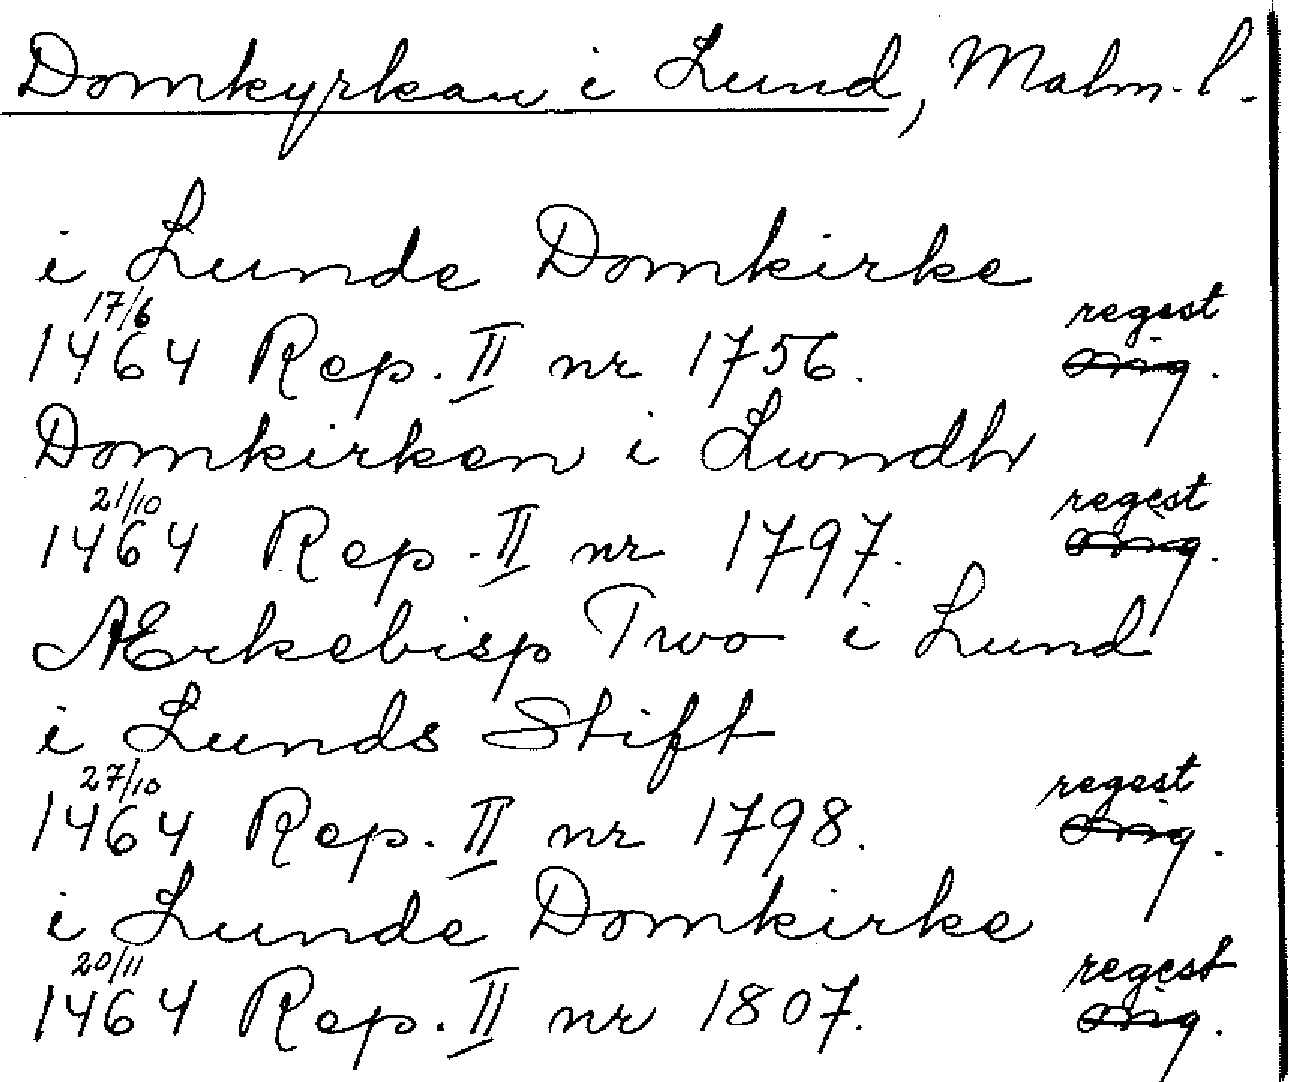 Domkyrkan i Lund, Malm. l.
i Lunde Domkirke
17/6 regest
1464 Rep. II nr 1756. orig.
Domkirken i Lwndh
21/10 regest
1464 Rep. II nr 1797. orig.
Ærkebisp Two i Lund
i Lunds Stift
27/10 regest
1464 Rep. II nr 1798. orig.
i Lunde Domkirke
20/11 regest
1464 Rep. II nr 1807. orig.